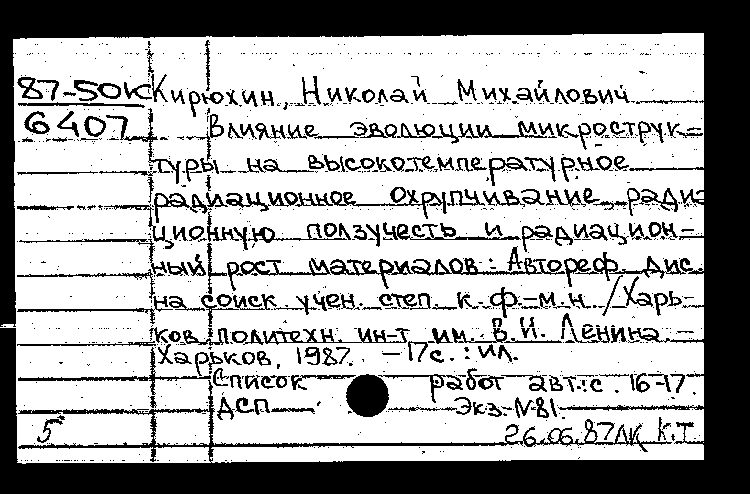 87-50К Кирюхин, Николай Михайлович
6407 Влияние эволюции микрострук=
туры на высокотемпературное
радиационное охрупчивание, радиа
ционную ползучесть и радиацион-
ный рост материалов: Автореф. дис.
на соиск. учен. степ. к.ф.-м.н. / Харь-
ков. политехн. ин-т им. В.И. Ленина. -
Харьков, 1987. - 17с. : ил.
Список работ авт.: с. 16-17.
ДСП Экз. N 81.
5 26.06.87 К.Т